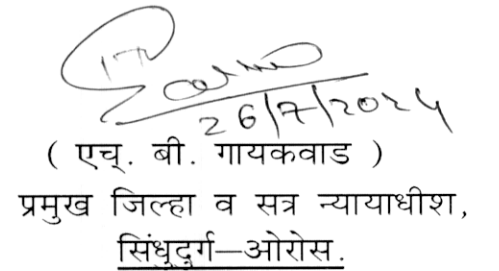 26/7/2024
( एच्. बी. गायकवाड )
प्रमुख जिल्हा व सत्र न्यायाधीश,
सिंधुदुर्ग–ओरोस.